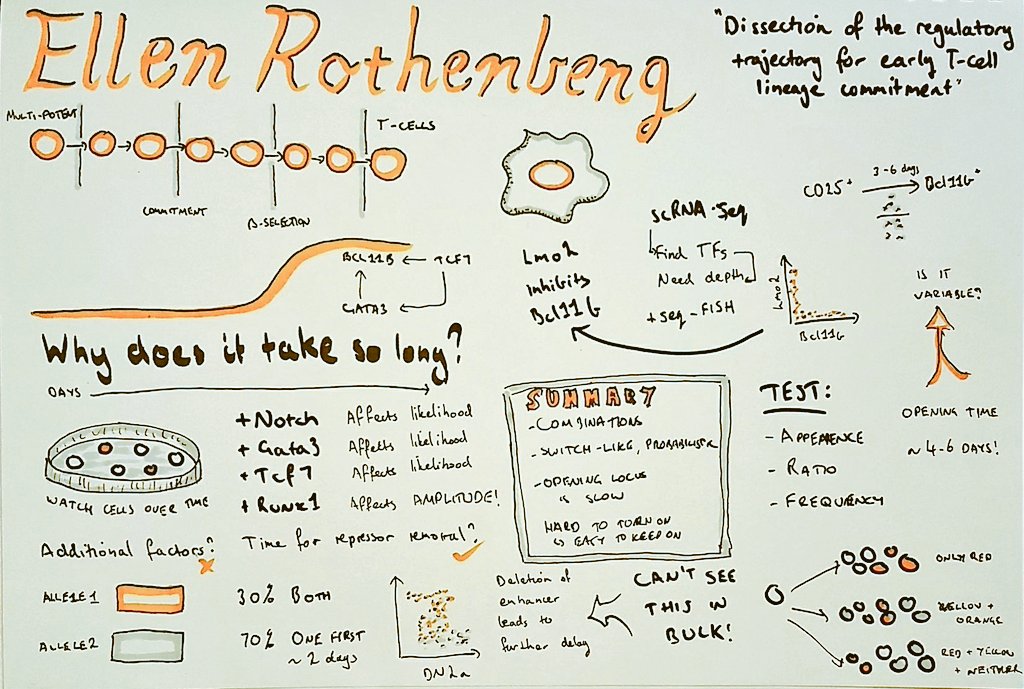 Ellen Rothenberg
"Dissection of the regulatory
trajectory for early T-cell
lineage commitment"
MULTI-POTENT
T-CELLS
COMMITMENT
β-SELECTION
BCL11B ← TCF7
GATA3
Lmo2
inhibits
Bcl11b
scRNA-seq
Find TFs
Need depth
+ seq-FISH
CD25+
3-6 days
Bcl11b+
Lmo2
Bcl11b
IS IT
VARIABLE?
OPENING TIME
~ 4-6 DAYS!
Why does it take so long?
DAYS
WATCH CELLS OVER TIME
+ Notch Affects likelihood
+ Gata3 Affects likelihood
+ Tcf7 Affects likelihood
+ Runx1 Affects AMPLITUDE!
Additional factors?
Time for repressor removal?
SUMMARY
- COMBINATIONS
- SWITCH-LIKE,
- OPENING LOCUS
IS SLOW
HARD TO TURN ON
EASY TO KEEP ON
TEST:
- APPEARENCE
- RATIO
- FREQUENCY
ALLELE 1
30% BOTH
ALLELE 2
70% ONE FIRST
~ 2 days
DN2a
Deletion of
enhancer
leads to
further delay
CAN'T SEE
THIS IN
BULK!
ONLY RED
YELLOW +
ORANGE
RED + YELLOW
+ NEITHER